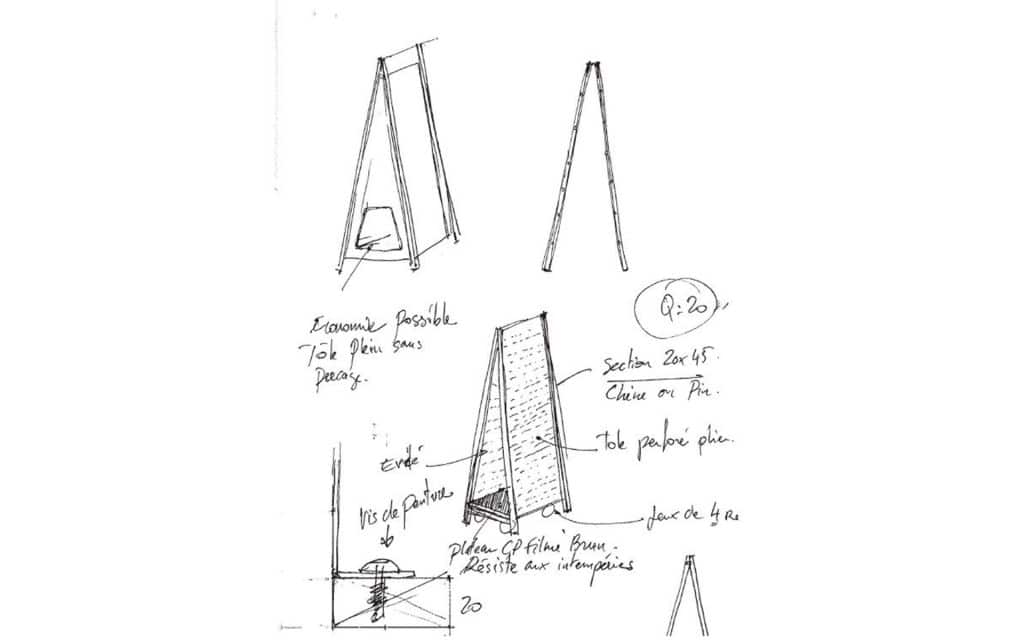 Economie possible
Tôle plein sans
percage.
Q: 20
Section 20x45.
Chêne ou Pin.
Tole perforé plier.
Evidé
Vis de penture
Jeux de 4 Ro
Plateau CP filmé Brun.
Résiste aux intempéries
20